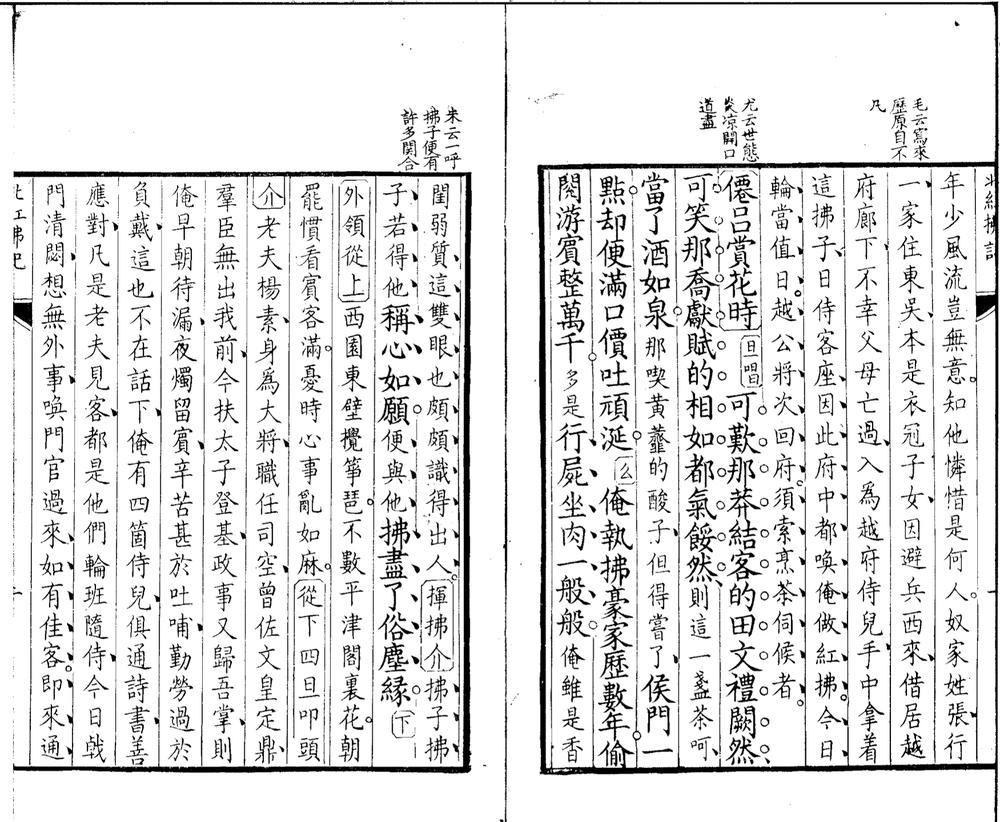 北紅拂記
毛云寫來
歷原自不
凡
年少風流豈無意知他憐惜是何人奴家姓張行
一家住東吳本是衣冠子女因避兵西來借居越
府廊下不幸父母亡過入為越府侍兒手中拿着
這拂子日侍客座因此府中都喚俺做紅拂今日
輪當值日越公將次回府須索烹茶伺候者
尤云世態
炎凉開口
道盡
僊呂賞花時 旦唱 可歎那莽結客的田文禮闕然
可笑那喬獻賦的相如都氣餒然則這一盞茶呵
當了酒如泉那喫黃虀的酸子但得嘗了侯門一
點却便滿口價吐頑涎 么 俺執拂豪家歷數年偷
閱游賓整萬千多是行屍坐肉一般般俺雖是香
朱云一呼
拂子便有
許多関合
閨弱質這雙眼也頗頗識得出人 揮拂介 拂子拂
子若得他稱心如願便與他拂盡了俗塵緣 下
外領從上 西園東壁攪箏琶不數平津閣裏花朝
罷慣看賓客滿憂時心事亂如麻 從下四旦叩頭
介 老夫楊素身為大將職任司空曾佐文皇定鼎
羣臣無出我前今扶太子登基政事又歸吾掌則
俺早朝待漏夜燭留賓辛苦甚於吐哺勤勞過於
負戴這也不在話下俺有四箇侍兒俱通詩書善
應對凡是老夫見客都是他們輪班隨侍今日戟
門清閟想無外事喚門官過來如有佳客即來通
北工拂記